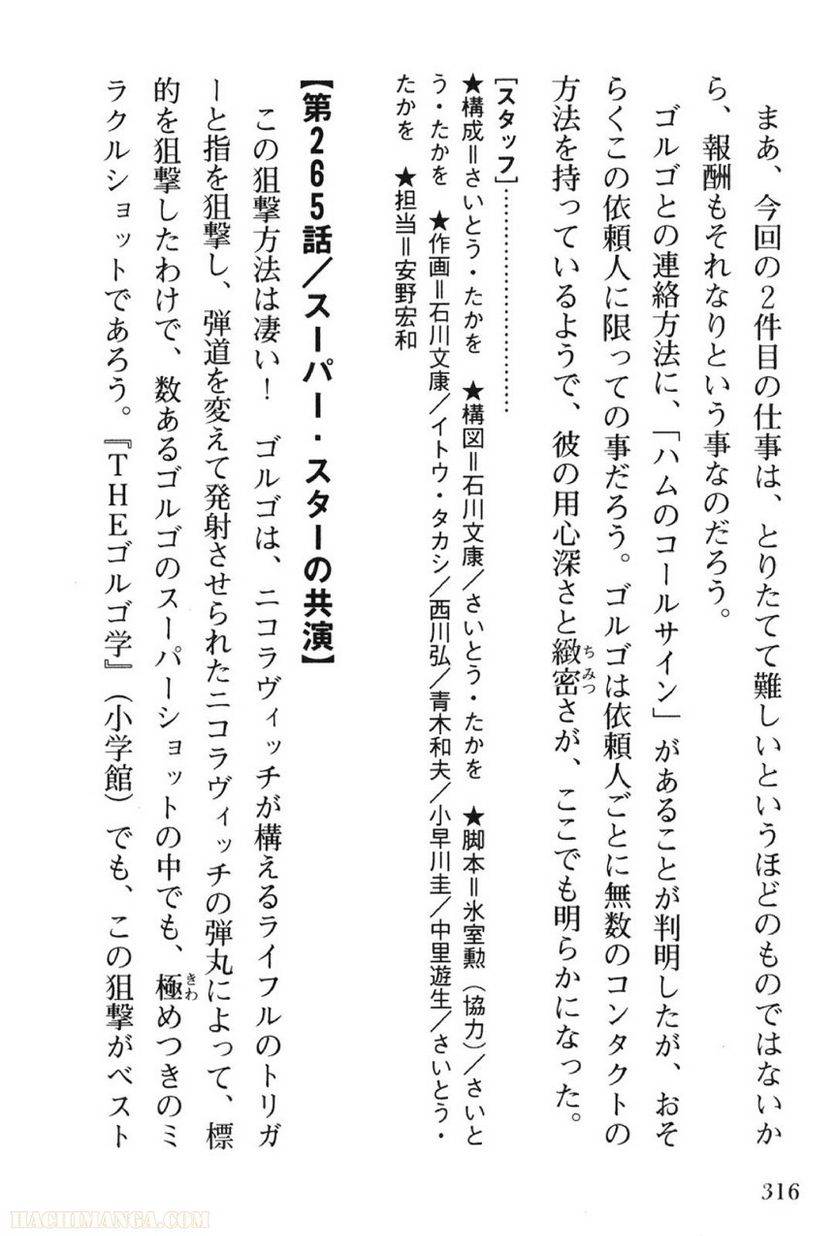 まあ、今回の2件目の仕事は、とりたてて難しいというほどのものではないか
ら、報酬もそれなりという事なのだろう。
ゴルゴとの連絡方法に、「ハムのコールサイン」があることが判明したが、おそ
らくこの依頼人に限っての事だろう。ゴルゴは依頼人ごとに無数のコンタクトの
方法を持っているようで、彼の用心深さと緻密さが、ここでも明らかになった。
ちみつ
[スタッフ]……………………………
★構成＝さいとう・たかを ★構図＝石川文康／さいとう・たかを ★脚本＝氷室勲（協力）／さいと
う・たかを ★作画＝石川文康／イトウ・タカシ／西川弘／青木和夫／小早川圭／中里遊生／さいとう・
たかを ★担当＝安野宏和
【第265話／スーパー・スターの共演】
この狙撃方法は凄い！ ゴルゴは、ニコラヴィッチが構えるライフルのトリガ
ーと指を狙撃し、弾道を変えて発射させられたニコラヴィッチの弾丸によって、標
的を狙撃したわけで、数あるゴルゴのスーパーショットの中でも、極めつきのミ
きわ
ラクルショットであろう。『THEゴルゴ学』（小学館）でも、この狙撃がベスト
316
HACHIMANGA.COM